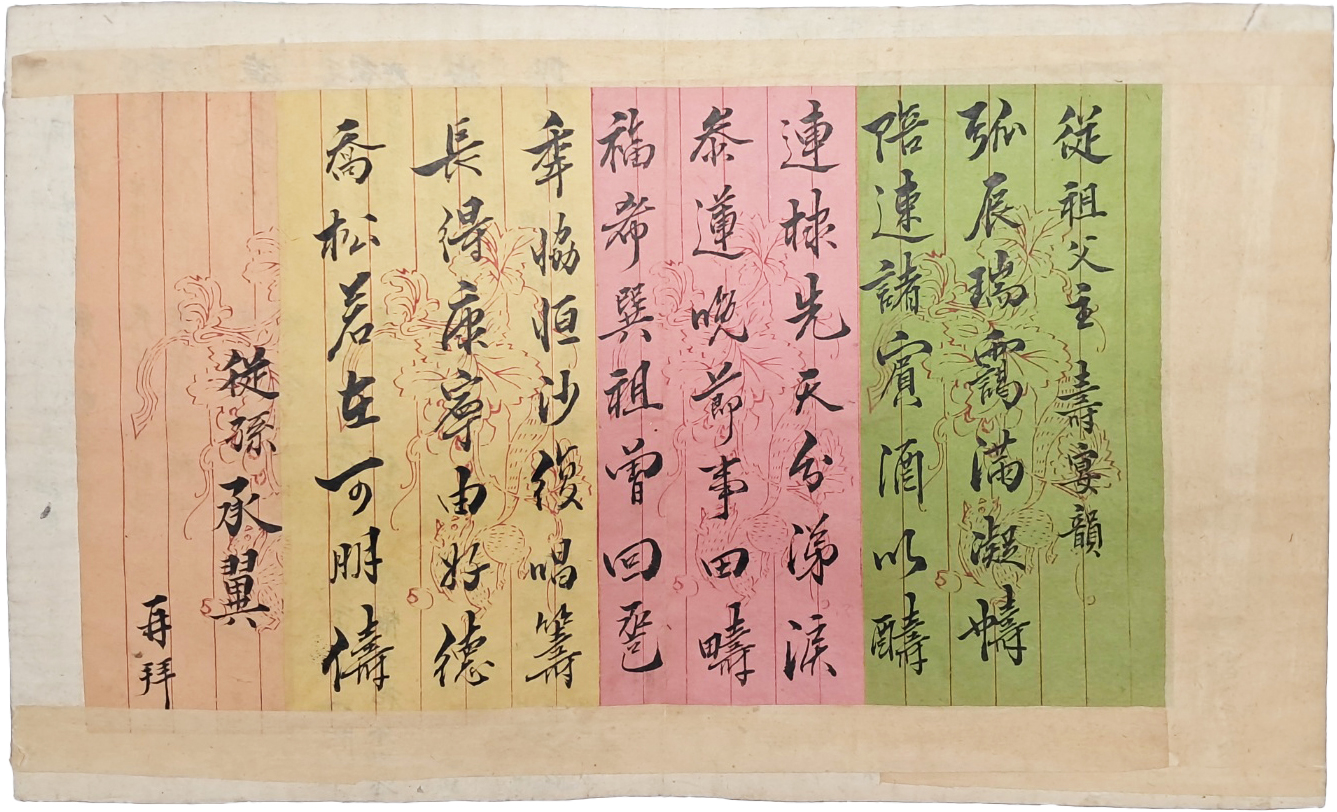 從祖父主 壽宴韻
弧辰瑞靄滿凝幬
陪速諸賓酒以醻
連棣先天分涕淚
泰運晩節事田疇
福希巽祖曾回巹
秊協恒沙復唱籌
長得康寧由好德
喬松若在可朋儔
從孫承翼
再拜